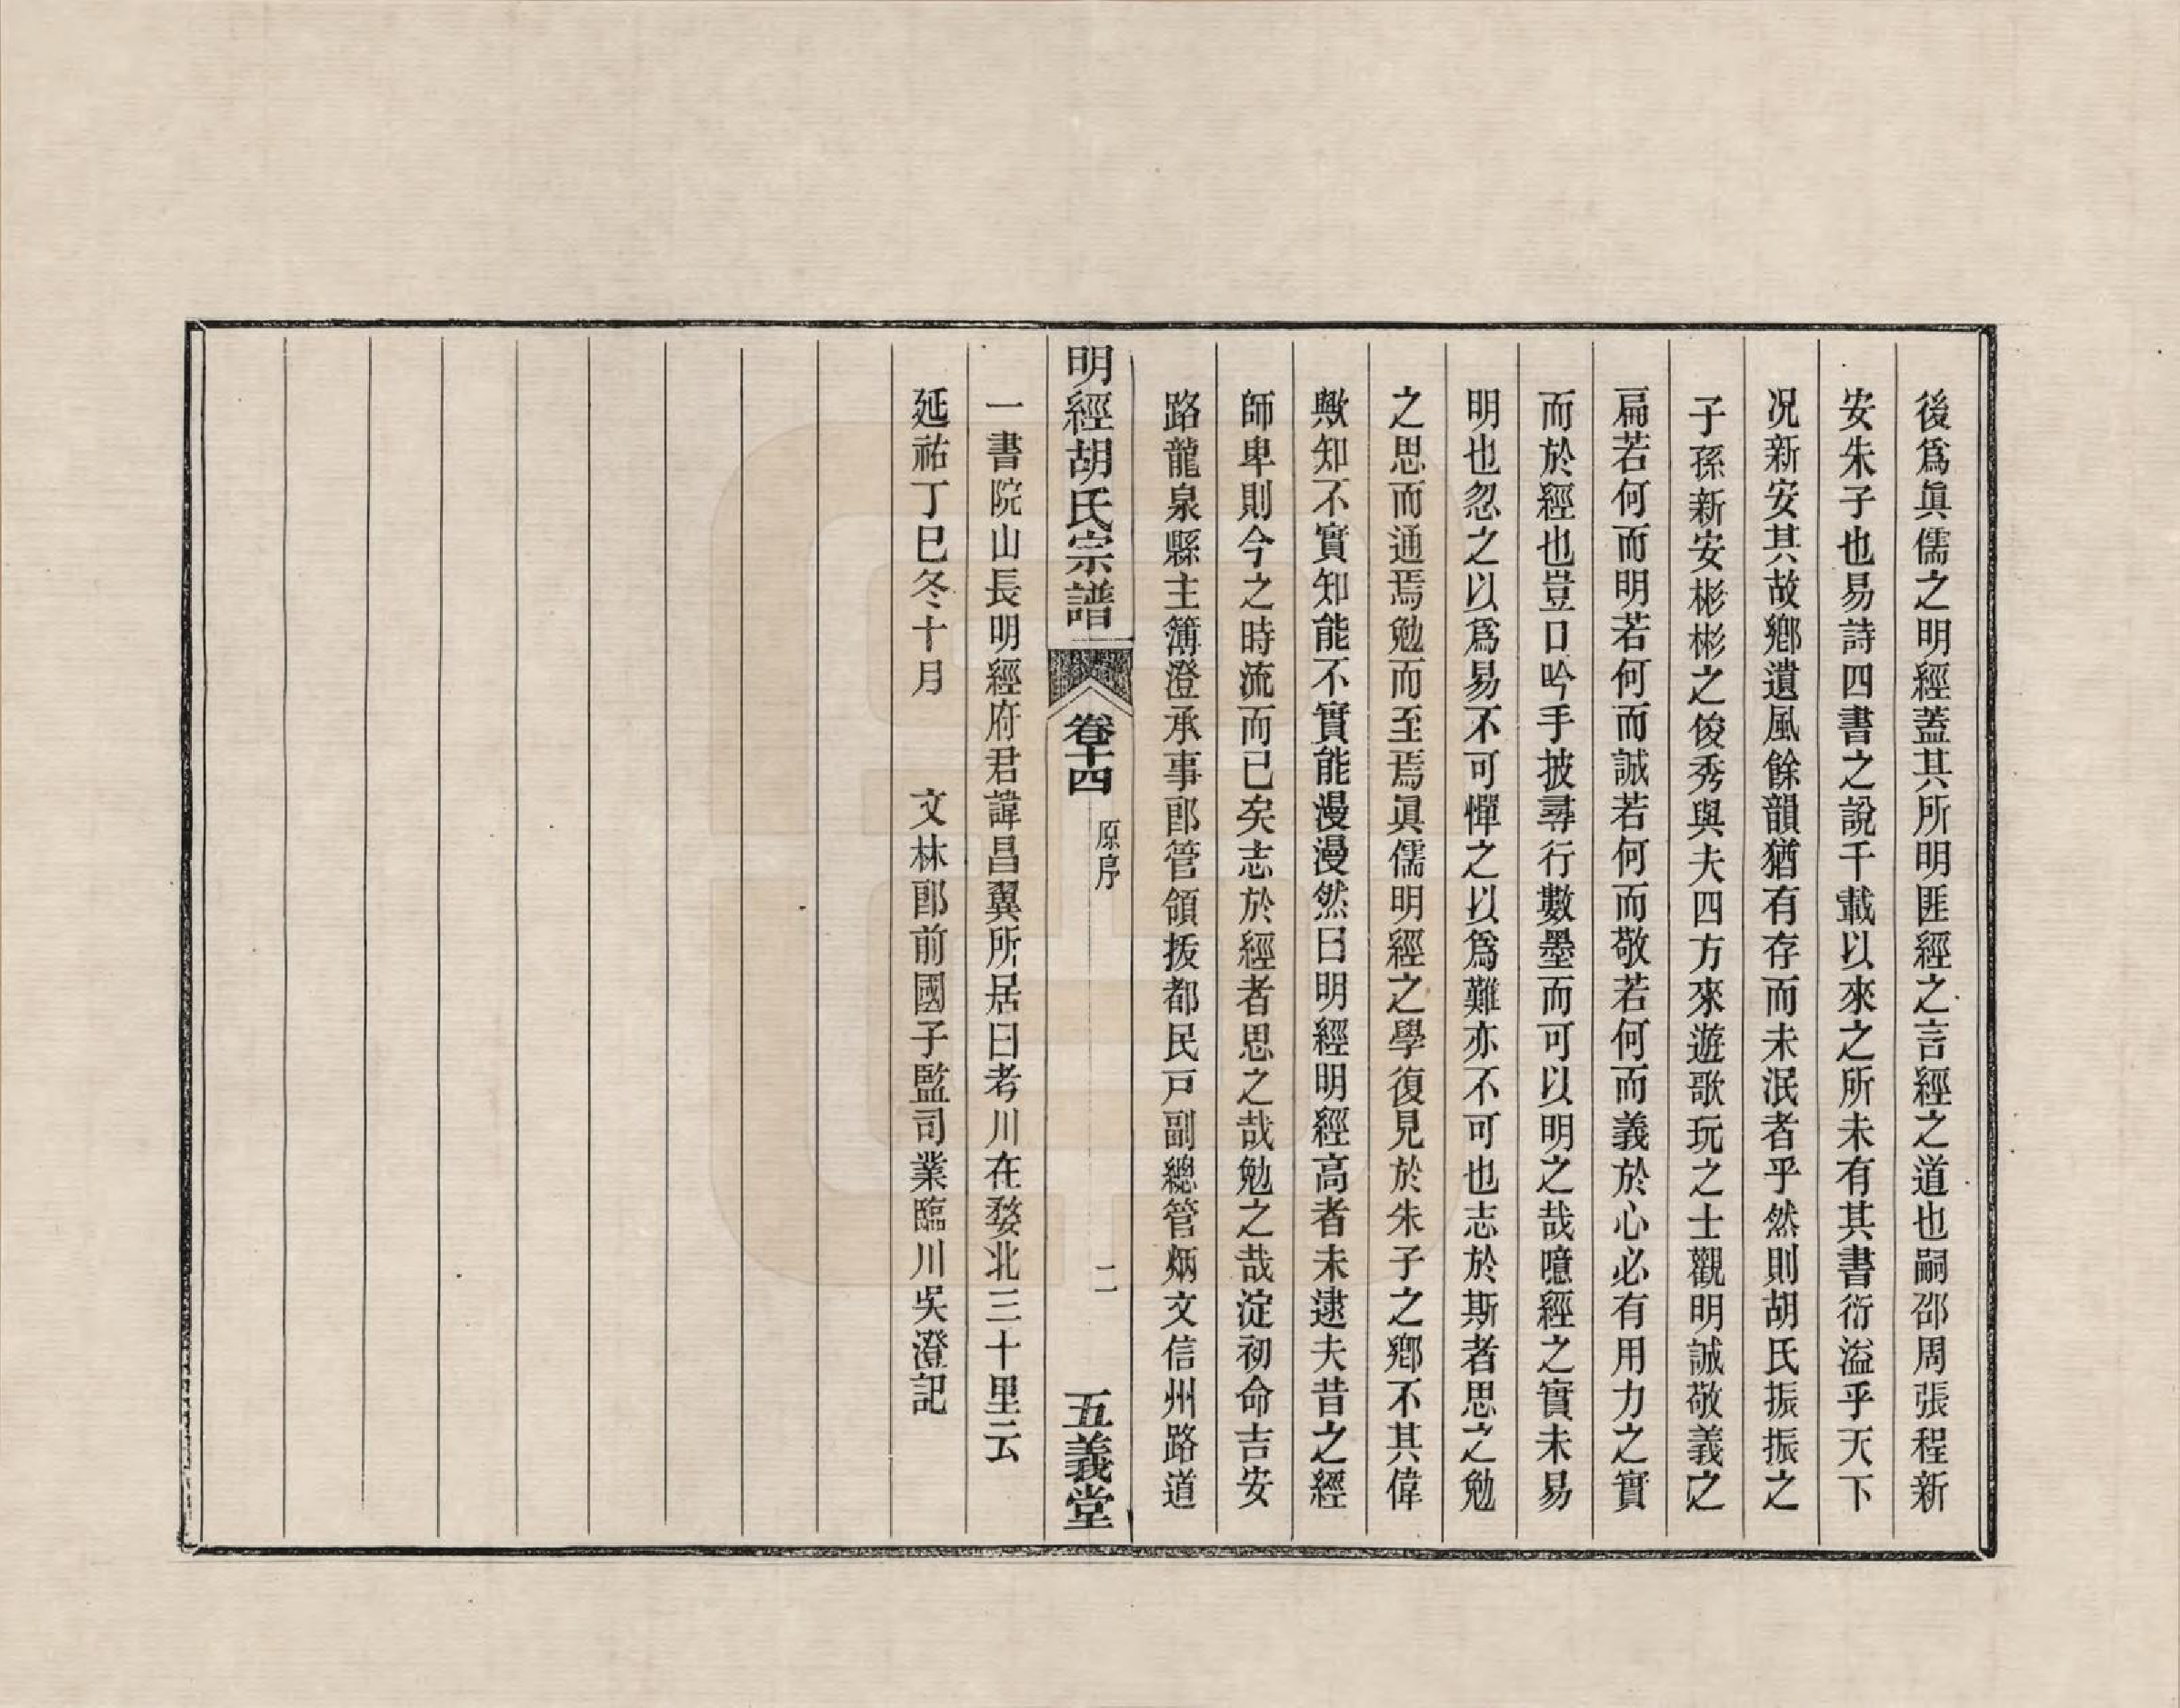 後爲眞儒之明經蓋其所明匪經之言經之道也嗣邵周張程新
安朱子也易詩四書之說千載以來之所未有其書衍溢乎天下
况新安其故鄉遺風餘韻猶有存而未泯者乎然則胡氏振振之
子孫新安彬彬之俊秀與夫四方來遊歌玩之士觀明誠敬義之
扁若何而明若何而誠若何而敬若何而義於心必有用力之實
而於經也豈口吟手披尋行數墨而可以明之哉噫經之實未易
明也忽之以爲易不可憚之以爲難亦不可也志於斯者思之勉
之思而通焉勉而至焉眞儒明經之學復見於朱子之鄉不其偉
歟知不實知能不實能漫漫然曰明經明經高者未逮夫昔之經
師卑則今之時流而已矣志於經者思之哉勉之哉淀初命吉安
路龍泉縣主簿澄承事郎管領拔都民戸副總管炳文信州路道
明經胡氏宗譜 卷十四 原序 二 五義堂
一書院山長明經府君諱昌翼所居曰考川在婺北三十里云
延祐丁巳冬十月 文林郎前國子監司業臨川吳澄記